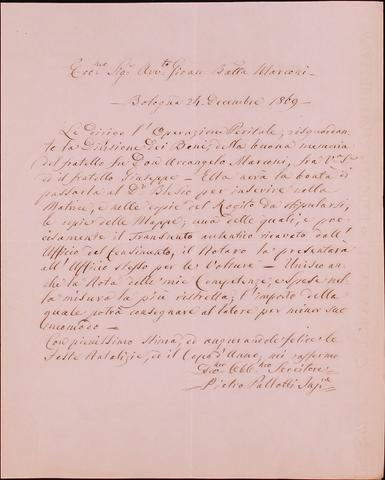 Ecc.mo Sig.r Avv.to Gioan Batta Marconi —
Bologna 24. Decembre 1869 —
Le dirigo l'Operazione Peritale, risguardan-
te la Divisione dei Beni, della buona memoria
del fratello fu Don Arcangelo Marconi, fra V.S.
ed il fratello Giuseppe — Ella avrà la bontà di
passarla al D.r Blesio per inserire nella
Matrice, e nelle copie del Rogito da stipularsi,
le copie delle Mappe; una delle quali, e pre-
cisamente il Transunto autentico ricavato dall'
Ufficio del Censimento, il Notaro la presenterà
all'Ufficio stesso per le Volture — Unisco an-
che la Nota delle mie Competenze, e spese nel-
la misura la più ristretta; l'importo della
quale potrà consegnare al latore per minor suo
incomodo —
Con pienissima stima, ed augurandole felice le
Feste Natalizie, ed il Capo d'Anno, mi raffermo
Obb.mo Servitore
Pietro Pallotti Ing.re